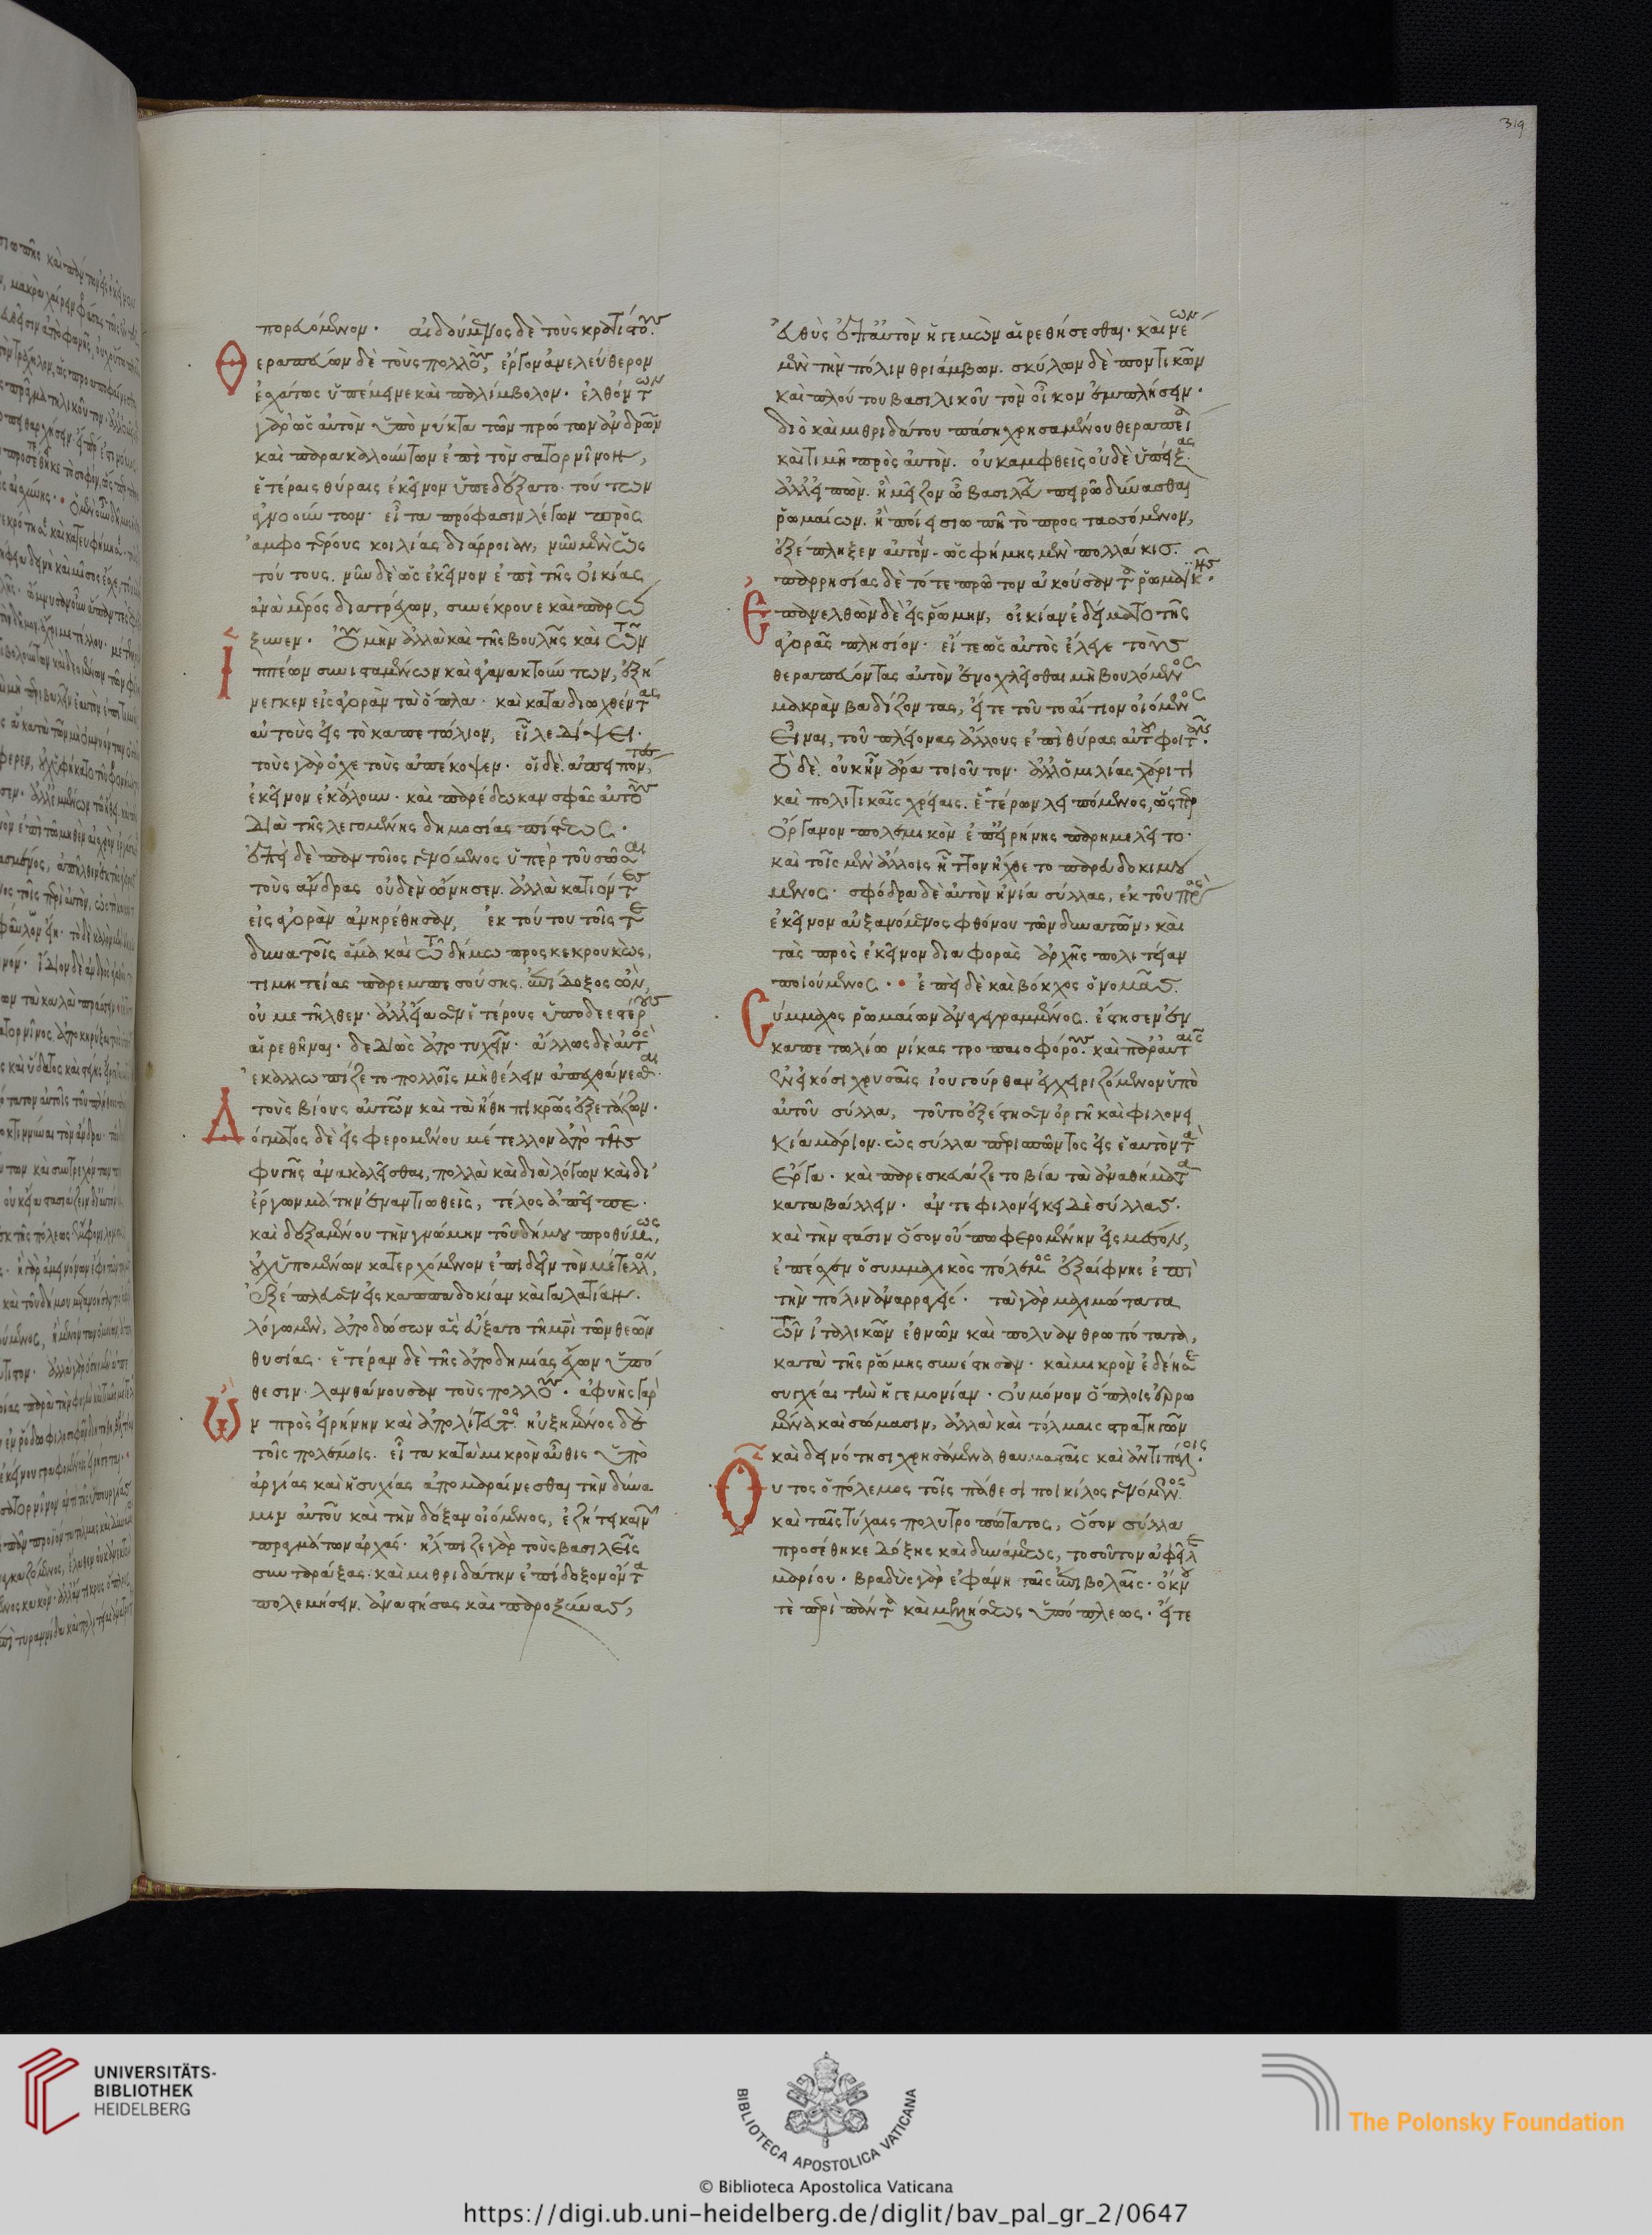 πορευόμενον. αἰδούμενος δὲ τοὺς κρατίστους.
Θεραπεύων δὲ τοὺς πολλοὺς, ἔργον ἀνελεύθερον
ἐσχάτως ὑπέμεινε καὶ παλίμβολον. ἐλθόντων
γὰρ ὡς αὐτὸν ὑπὸ νύκτα τῶν πρώτων ἀνδρῶν
καὶ παρακαλούντων ἐπὶ τὸν σατορνῖνον,
ἑτέραις θύραις ἐκεῖνον ὑπεδέξατο τούτων
ἀγνοούντων. εἶτα πρόφασιν λέγων πρὸς
ἀμφοτέρους κοιλίας διάρροιαν, νῦν μὲν ὡς
τούτους. νῦν δὲ ὡς ἐκεῖνον ἐπὶ τῆς οἰκίας
ἀνὰ μέρος διατρέχων, συνέκρουε καὶ παρώ
ξυνεν. Οὐ μὴν ἀλλὰ καὶ τῆς βουλῆς καὶ τῶν
ἱππέων συνισταμένων καὶ ἀγανακτούντων, ἐξή
νεγκεν εἰς ἀγορὰν τὰ ὅπλα. καὶ καταδιωχθέντας
αὐτοὺς εἰς τὸ καπετώλιον, εἷλε δίψει.
τοὺς γὰρ ὀχετοὺς ἀπέκοψεν. οἱ δὲ ἀπειπόντες,
ἐκεῖνον ἐκάλουν. καὶ παρέδωκαν σφᾶς αὐτοὺς
διὰ τῆς λεγομένης δημοσίας πίστεως.
ἐπεὶ δὲ παντοῖος γενόμενος ὑπὲρ τοῦ σῶσαι
τοὺς ἄνδρας οὐδὲν ὤνησεν. ἀλλὰ κατιόντες
εἰς ἀγορὰν ἀνηρέθησαν, ἐκ τούτου τοῖς τε
δυνατοῖς ἅμα καὶ τῷ δήμω προσκεκρουκὼς,
τιμητείας παρεμπεσούσης. ἐπίδοξος ὢν,
οὐ μετῆλθεν. ἀλλ' εἴασεν ἑτέρους ὑποδεεστέρους
αἱρεθῆναι. δεδιὼς ἀποτυχεῖν. ἄλλως δὲ αὐτὸς
ἐκαλλωπίζετο πολλοῖς μὴ θέλειν ἀπεχθάνεσθαι.
τοὺς βίους αὐτῶν καὶ τὰ ἤθη πικρῶς ἐξετάζων.
Δόγματος δὲ εἰσφερομένου μέτελλον ἀπὸ τῆς
φυγῆς ἀνακαλεῖσθαι, πολλὰ καὶ διὰ λόγων καὶ δι'
ἔργων μάτην ἐναντιωθεὶς, τέλος ἀπεῖπε.
καὶ δεξαμένου τὴν γνώμην τοῦ δήμου προθύμως,
οὐχ ὑπομένων κατερχόμενον ἐπιδεῖν τὸν μέτελλον,
ἐξέπλευσεν εἰς καππαδοκίαν καὶ γαλατίαν.
λόγω μὲν, ἀποδώσων ἃς εὔξατο τῇ μητρὶ τῶν θεῶν
θυσίας. ἑτέραν δὲ τῆς ἀποδημίας ἔχων ὑπό
θεσιν λανθάνουσαν τοὺς πολλούς. ἀφυὴς γὰρ
ὢν πρὸς εἰρήνην καὶ ἀπολίτευτος. ηὐξημένος δὲ
τοῖς πολέμοις. εἶτα κατὰ μικρὸν αὖθις ὑπὸ
ἀργίας καὶ ἡσυχίας ἀπομαραίνεσθαι τὴν δύνα
μιν αὐτοῦ καὶ τὴν δόξαν οἰόμενος, ἐζήτει καινῶν
πραγμάτων ἀρχάς. ἤλπιζε γὰρ τοὺς βασιλεῖς
συνταράξας. καὶ μιθριδάτην ἐπίδοξον ὄντα
πολεμήσειν. ἀναστήσας καὶ παροξύνας,
319
εὐθὺς ἐπ' αὐτὸν ἡγεμὼν αἱρεθήσεσθαι. καὶ νέων
μὲν τὴν πόλιν θριάμβων. σκύλων δὲ ποντικῶν
καὶ πλούτου βασιλικοῦ τὸν οἶκον ἐμπλήσειν.
διὸ καὶ μιθριδάτου πάση χρησαμένου θεραπεία
καὶ τιμῆ πρὸς αὐτὸν. οὐ καμφθεὶς οὐδὲ ὑπείξας.
ἀλλ' εἰπὼν. ἢ μεῖζον ὦ βασιλεῦ πειρῶ δύνασθαι
ῥωμαίων. ἢ ποίει σιωπῆ τὸ προστασσόμενον,
ἐξέπληξεν αὐτὸν. ὡς φήμης μὲν πολλάκις.
παρρησίας δὲ τότε πρῶτον ἀκούσαντα ῥωμαϊκῆς.
Ἐπανελθὼν δὲ εἰς ῥώμην, οἰκίαν ἐδείματο τῆς
ἀγορᾶς πλησίον. εἴτε ὡς αὐτὸς ἔλεγε τοὺς
θεραπεύοντας αὐτὸν ἐνοχλεῖσθαι μὴ βουλόμενος
μακρὰν βαδίζοντας, εἴτε τοῦτο αἴτιον οἰόμενος
εἶναι, τοῦ πλείονας ἄλλους ἐπὶ θύρας αὐτοῦ φοιτᾶν.
Τὸ δὲ. οὐκ ἦν ἄρα τοιοῦτον. ἀλλ' ὁμιλίας χάριτι
καὶ πολιτικαῖς χρείαις. ἑτέρων λειπόμενος, ὥσπερ
ὄργανον πολεμικὸν ἐπ' εἰρήνης παρημελεῖτο.
καὶ τοῖς μὲν ἄλλοις ἧττον ἤχθετο παρευδοκιμού
μενος. σφόδρα δὲ αὐτὸν ἠνία σύλλας, ἐκ τοῦ πρὸς
ἐκεῖνον αὐξανόμενος φθόνου τῶν δυνατῶν, καὶ
τὰς πρὸς ἐκεῖνον διαφορὰς ἀρχῆς πολιτείαν
ποιούμενος. ἐπεὶ δὲ καὶ βόκχος ὁ νομᾶς.
Σύμμαχος ῥωμαίων ἀναγεγραμμένος. ἔστησεν ἐν
καπετωλίω νίκας τροπαιοφόρους. καὶ παρ' αὐταῖς
ἐν εἰκόσι χρυσαῖς ἰουγούρθαν ἐγχειριζόμενον ὑπὸ
αὐτοῦ σύλλα, τοῦτο ἐξέστησεν ὀργῆ καὶ φιλονει
κία μάριον. ὡς σύλλα περισπῶντος εἰς ἑαυτὸν τὰ
ἔργα. καὶ παρεσκευάζετο βία τὰ ἀναθήματα
καταβάλλειν. ἀντεφιλονείκει δὲ σύλλας.
καὶ τὴν στάσιν ὅσον οὔπω φερομένην εἰς μέσον,
ἐπέσχεν ὁ συμμαχικὸς πόλεμος ἐξαίφνης ἐπὶ
τὴν πόλιν ἀναρραγείς. τὰ γὰρ μαχιμώτατα
τῶν ἰταλικῶν ἐθνῶν καὶ πολυανθρωπότατα,
κατὰ τῆς ῥώμης συνέστησαν. καὶ μικρὸν ἐδέησε
συγχέαι τὴν ἡγεμονίαν. Οὐ μόνον ὅπλοις ἐρρω
μένα καὶ σώμασιν, ἀλλὰ καὶ τόλμαις στρατηγῶν
καὶ δεινότησι χρησάμενα θαυμασταῖς καὶ ἀντιπάλοις.
Οὗτος ὁ πόλεμος τοῖς πάθεσι ποικίλος γενόμενος
καὶ ταῖς τύχαις πολυτροπώτατος, ὅσον σύλλα
προσέθηκε δόξης καὶ δυνάμεως, τοσοῦτον ἀφεῖλε
μαρίου. βραδὺς γὰρ ἐφάνη ταῖς ἐπιβολαῖς. ὄκνου
τὲ περὶ πάντα καὶ μελλήσεως ὑπόπλεως. εἴτε
UNIVERSITÄTS-
BIBLIOTHEK
HEIDELBERG
BIBLIOTECA APOSTOLICA VATICANA
The Polonsky Foundation
© Biblioteca Apostolica Vaticana
https://digi.ub.uni-heidelberg.de/diglit/bav_pal_gr_2/0647